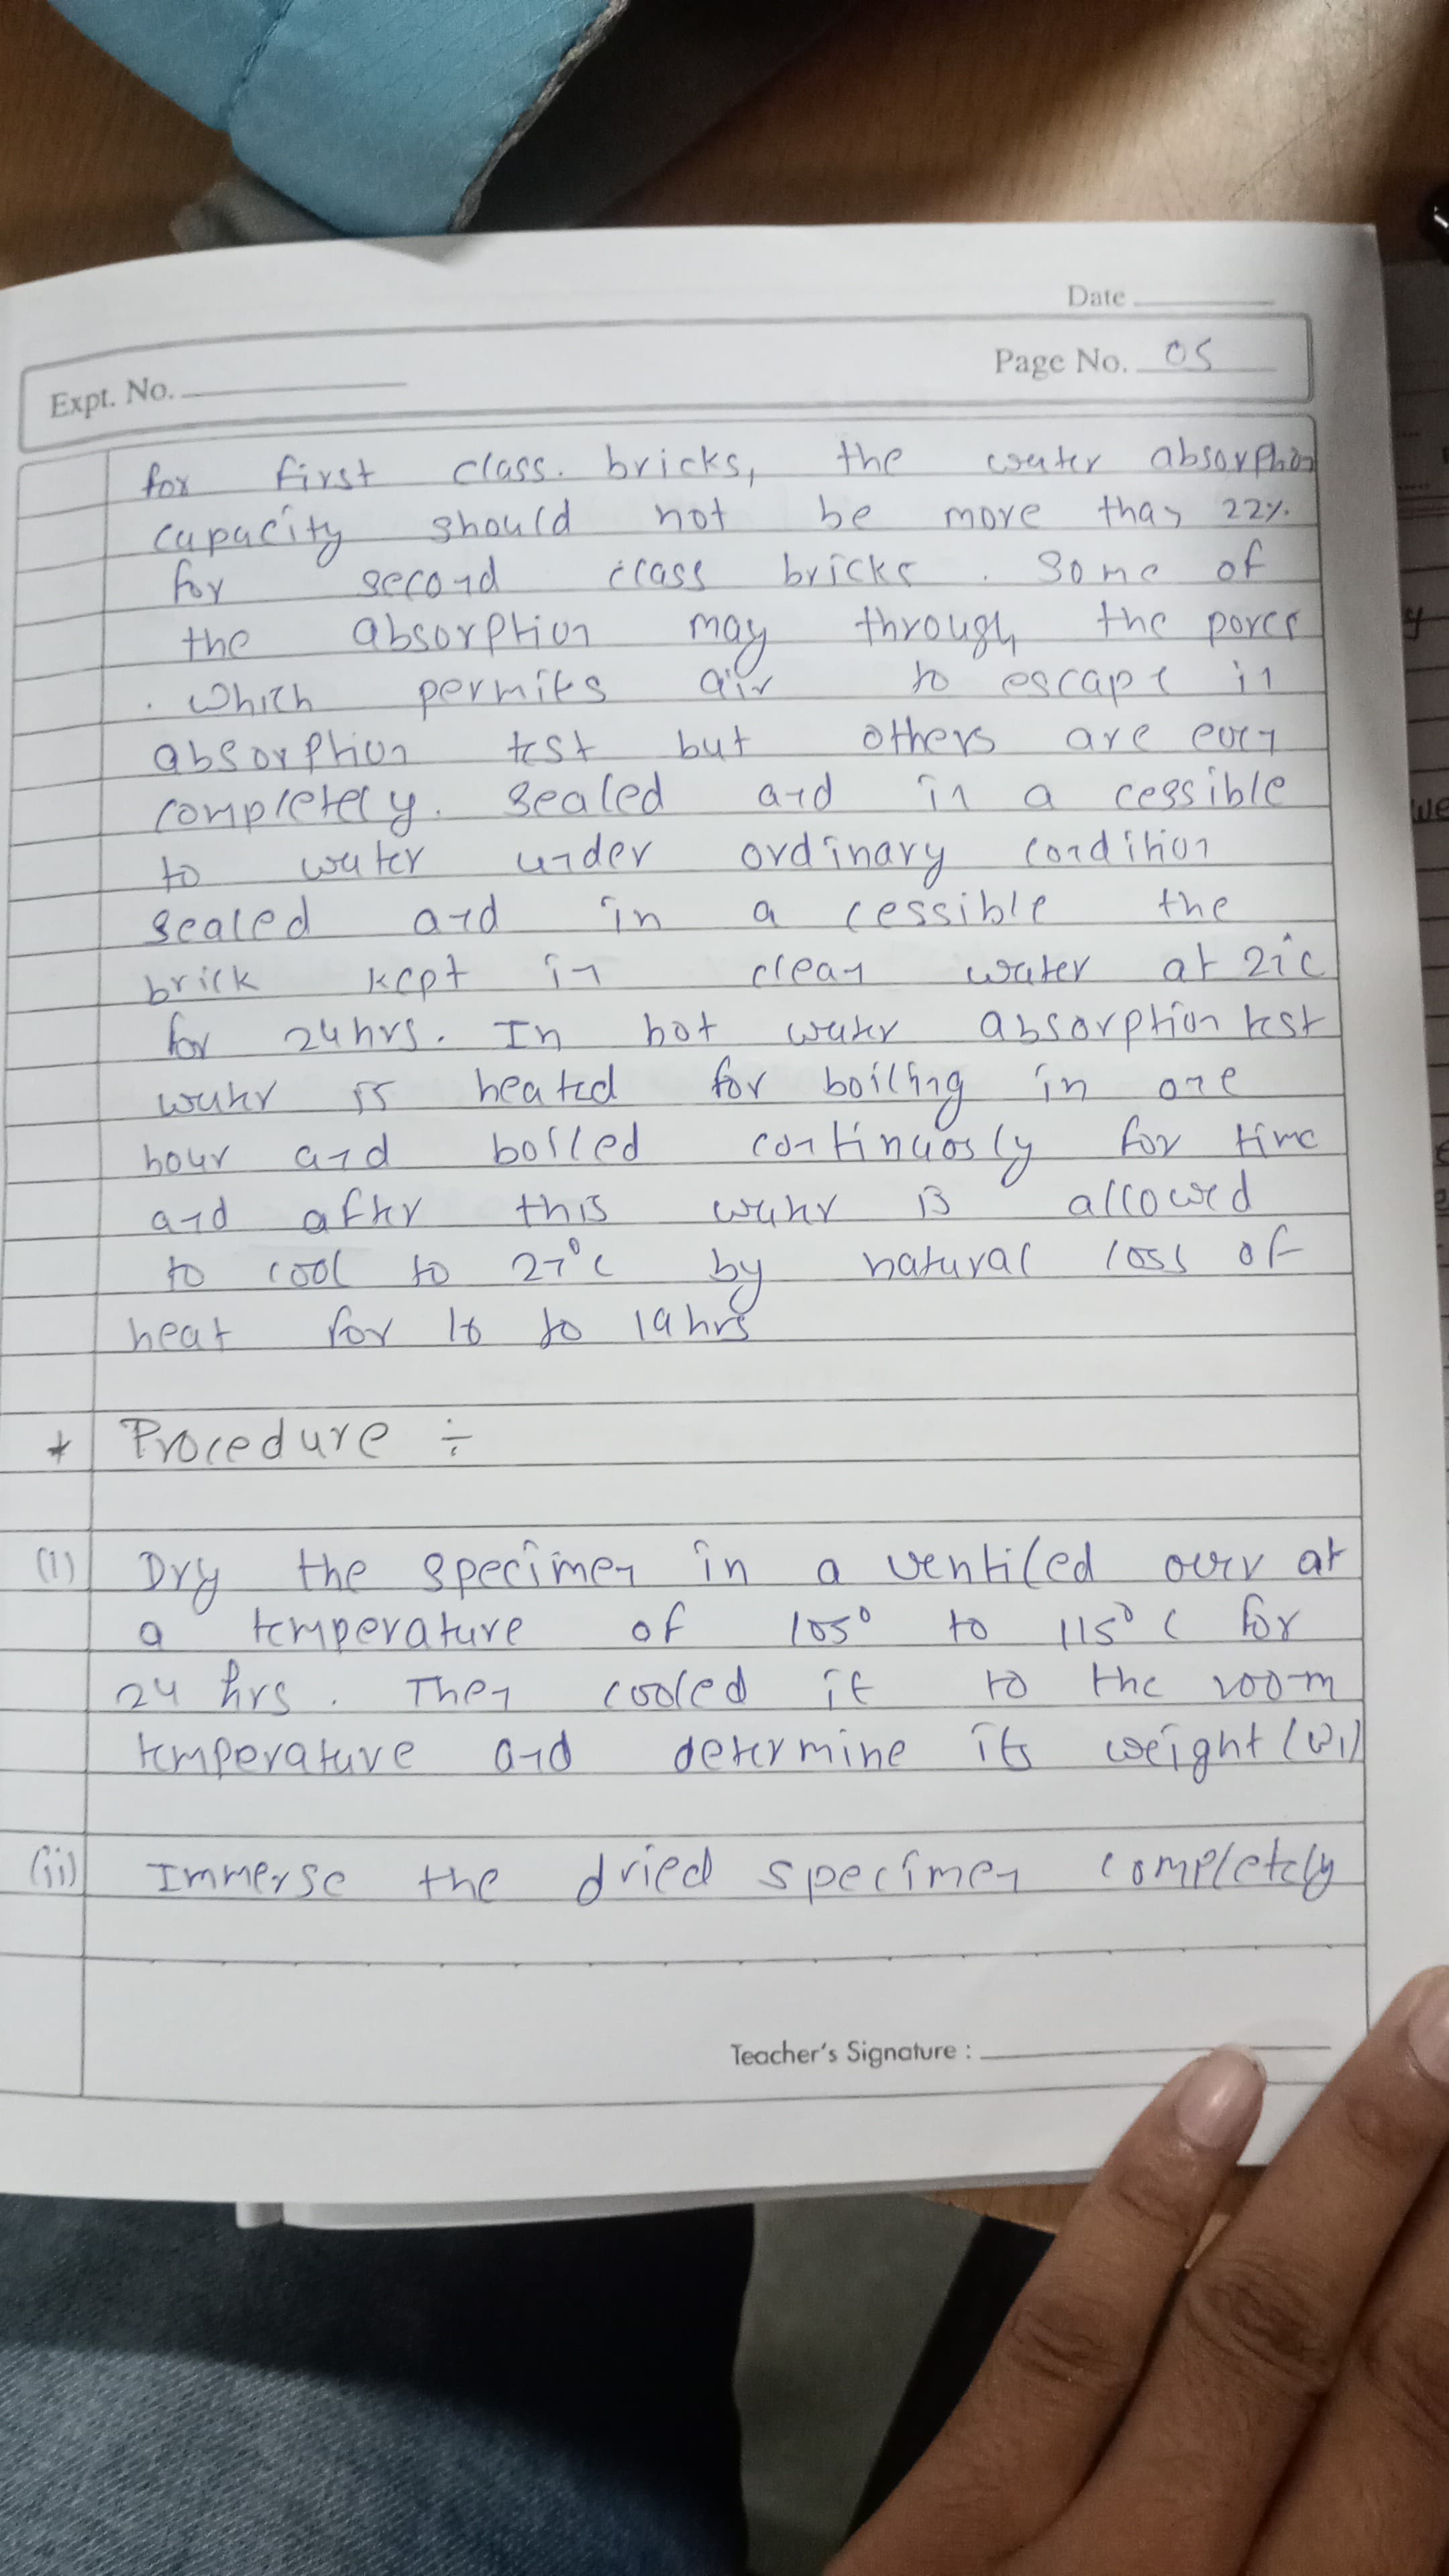 Date
Expt. No.
Page No. 05
for first class. bricks, the water absorption
capacity should not be more than 22%.
for second class bricks. Some of
the absorption may through the pores
. which permits air to escape in
absorption test but others are even
completely. sealed and in a cessible
to water under ordinary condition
sealed and in a cessible the
brick kept in clean water at
for 24hrs. In hot water absorption test
water is heated for boiling in one
hour and boiled continuosly for time
and after this water is allowed
to cool to 27°C by natural loss of
heat for 16 to 19hrs
* Procedure ÷
(i) Dry the specimen in a ventiled at
a temperature of 105° to 115°C for
24 hrs. Then cooled it to the room
temperature and determine its weight (W1)
(ii) Immerse the dried specimen completely
Teacher's Signature :